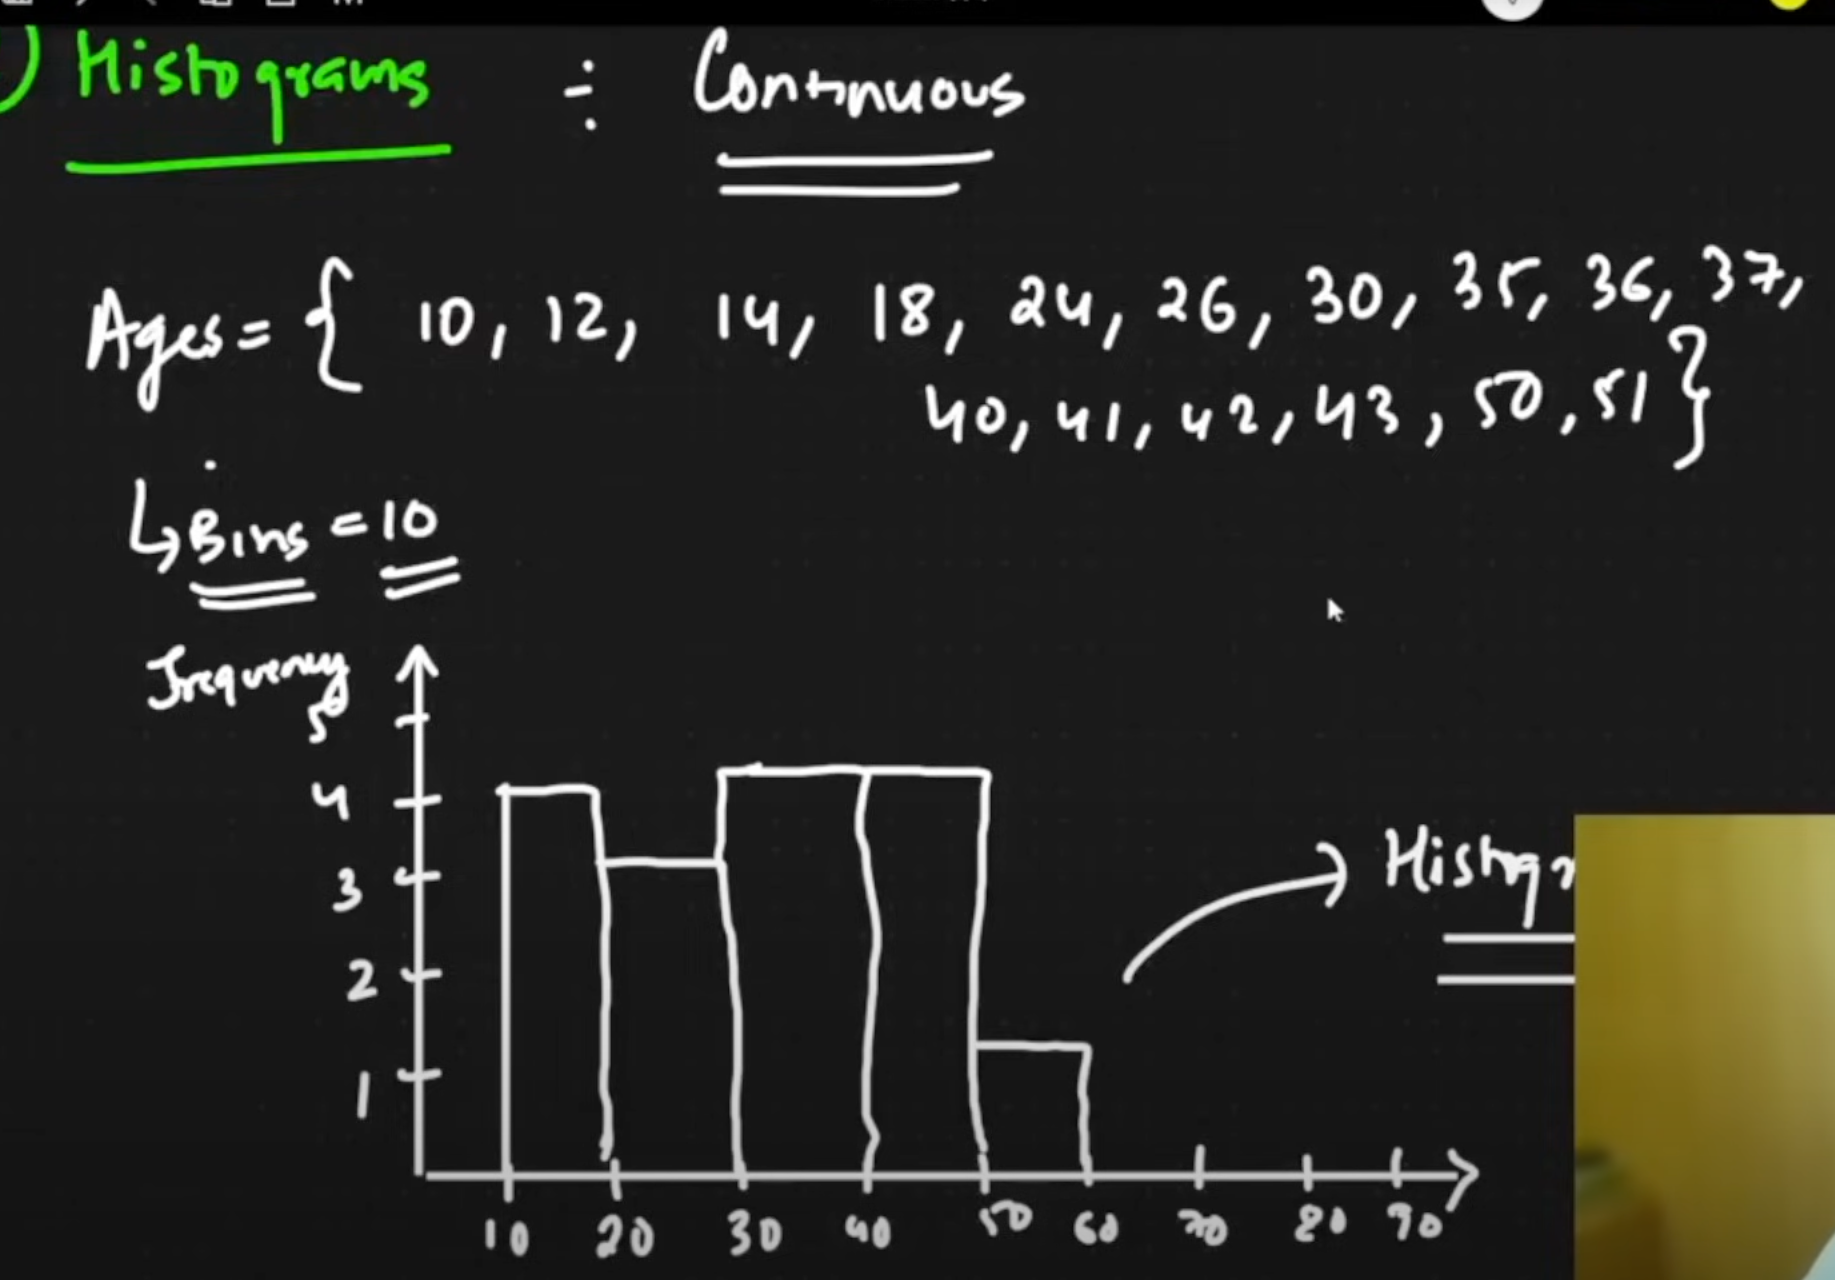 ) Histograms ÷ Continuous
Ages = { 10, 12, 14, 18, 24, 26, 30, 35, 36, 37,
40, 41, 42, 43, 50, 51 }
↳ Bins = 10
Frequency
5
4
3
2
1
10 20 30 40 50 60 70 80 90